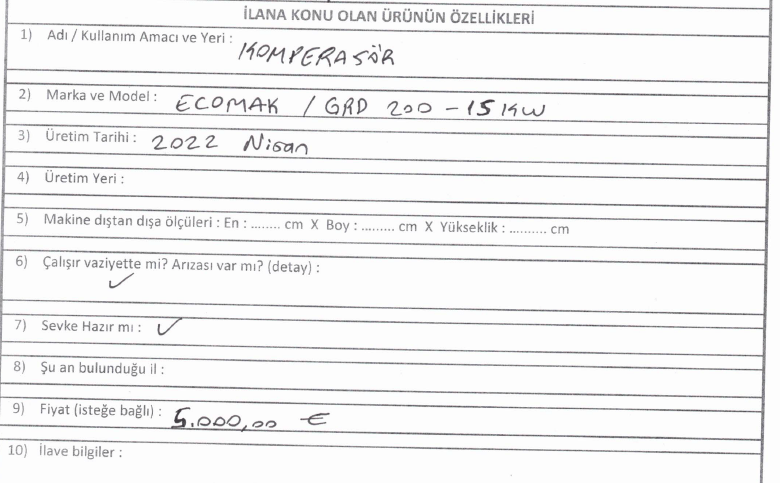 İLANA KONU OLAN ÜRÜNÜN ÖZELLİKLERİ
1) Adı / Kullanım Amacı ve Yeri : KOMPERASÖR
2) Marka ve Model : ECOMAK / GRD 200 - 15 KW
3) Üretim Tarihi : 2022 Nisan
4) Üretim Yeri :
5) Makine dıştan dışa ölçüleri : En : ........ cm X Boy : ......... cm X Yükseklik : .......... cm
6) Çalışır vaziyette mi? Arızası var mı? (detay) :
✓
7) Sevke Hazır mı : ✓
8) Şu an bulunduğu il :
9) Fiyat (isteğe bağlı) : 5.000,00 €
10) İlave bilgiler :